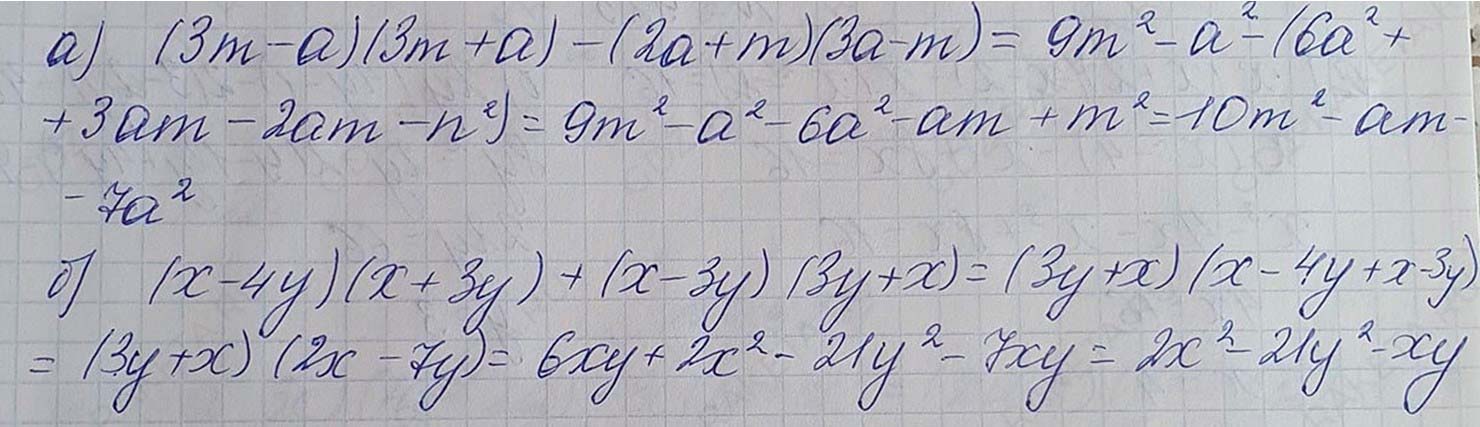 а) (3m-a)(3m+a)-(2a+m)(3a-m)= 9m²-a²-(6a²+
+3am-2am-n²)=9m²-a²-6a²-am+m²=10m²-am-
-7a²
б) (x-4y)(x+3y)+(x-3y)(3y+x)=(3y+x)(x-4y+x-3y)
=(3y+x)(2x-7y)=6xy+2x²-21y²-7xy=2x²-21y²-xy